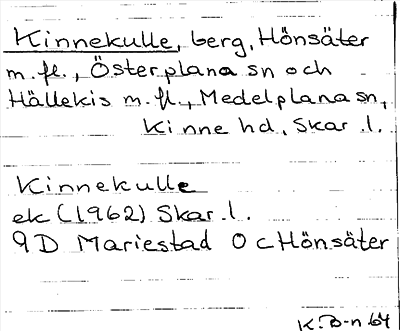 Kinnekulle, berg, Hönsäter
m.fl., Österplana sn och
Hällekis m.fl., Medelplana sn,
Kinne hd, Skar.l.
Kinnekulle
ek (1962) Skar.l.
9D Mariestad 0c Hönsäter
K.B-n 64